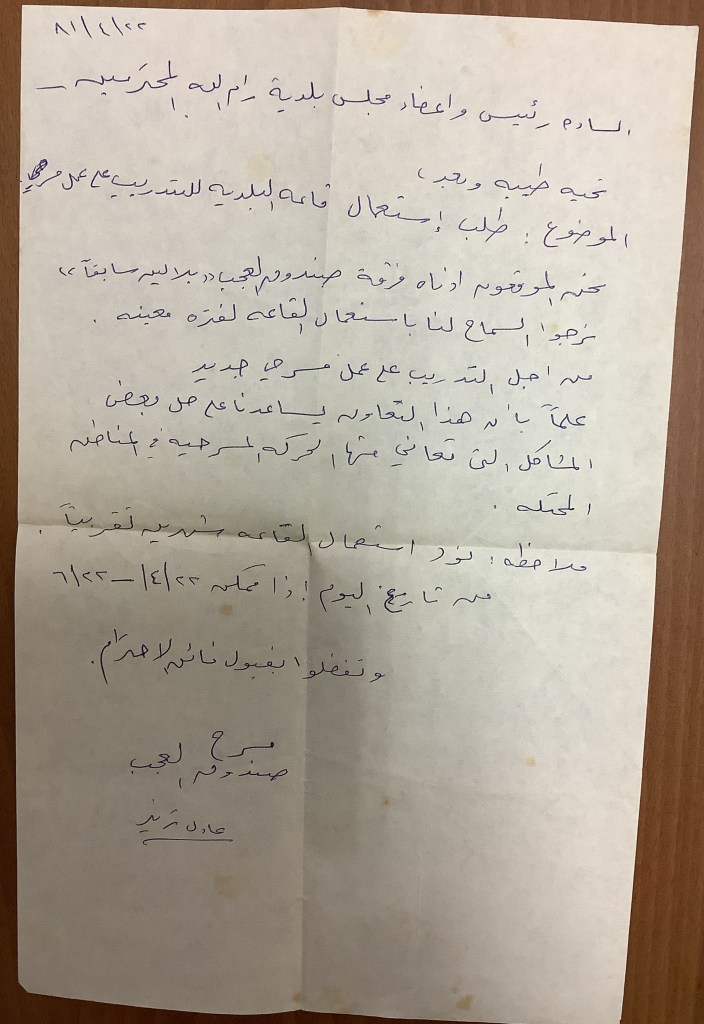 ٨١/٤/٢٢
الساده رئيس واعضاء مجلس بلدية رام الله المحترمين -
تحيه طيبه وبعد،
الموضوع : طلب إستعمال قاعه البلديه للتدريب على عمل مسرحي.
نحن الموقعون ادناه فرقة صندوق العجب "بلالين سابقاً"
نرجوا السماح لنا باستعمال القاعه لفتره معينه .
من اجل التدريب على عمل مسرحي جديد
علماً بأن هذا التعاون يساعدنا على حل بعض
المشاكل التي تعاني منها الحركه المسرحيه في المناطق
المحتله .
ملاحظه : نود استعمال القاعه شهرين تقريباً .
من تاريخ اليوم إذا ممكن ٤/٢٢ - ٦/٢٢
وتفضلوا بقبول فائق الاحترام.
مسرح
صندوق العجب
عادل